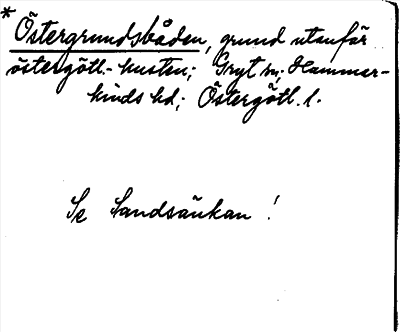 * Östergrundsbåden, grund utanför
östergötl.-kusten; Gryt sn; Hammar-
kinds hd; Östergötl. l.
Se Sandsänkan!